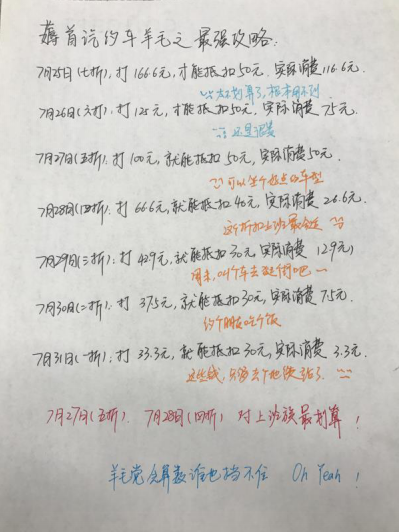 薅首汽约车羊毛之最强攻略:
7月25日(七折),打166.6元,才能抵扣50元.实际消费116.6元.
太不划算了,根本用不到
7月26日(六折):打125元,才能抵扣50元,实际消费75元.
还是浪费
7月27日(五折):打100元,就能抵扣50元,实际消费50元.
可以坐个好点的车型
7月28日(四折):打66.6元,就能抵扣40元,实际消费26.6元.
这个折扣上班最合适
7月29日(三折):打42.9元,就能抵扣30元,实际消费12.9元)
周末,叫个车去逛街吧
7月30日(二折):打37.5元,就能抵扣30元,实际消费7.5元.
约个朋友吃个饭
7月31日(一折):打33.3元,就能抵扣30元,实际消费3.3元.
7月27日(五折).7月28日(四折)对上班族最划算!
羊毛党会算数谁也挡不住 Oh Yeah!